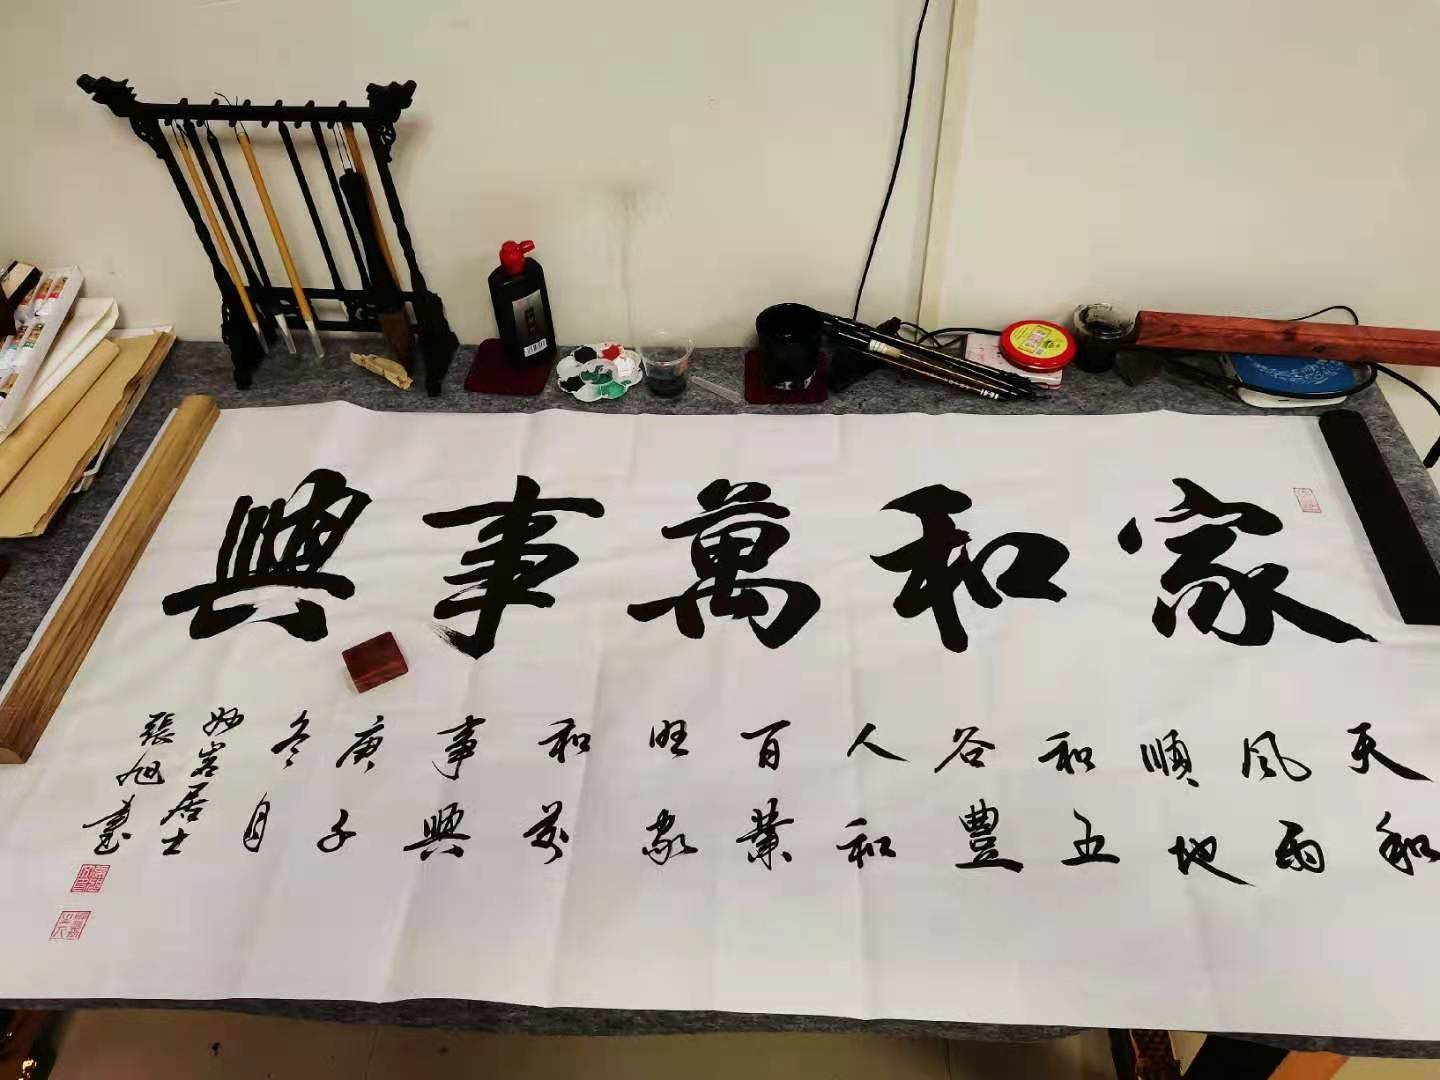 家和萬事興
天和
風雨
順地
和五
谷豐
人和
百業
旺家
和萬
事興
庚子
冬月
妙岩居士
張旭書